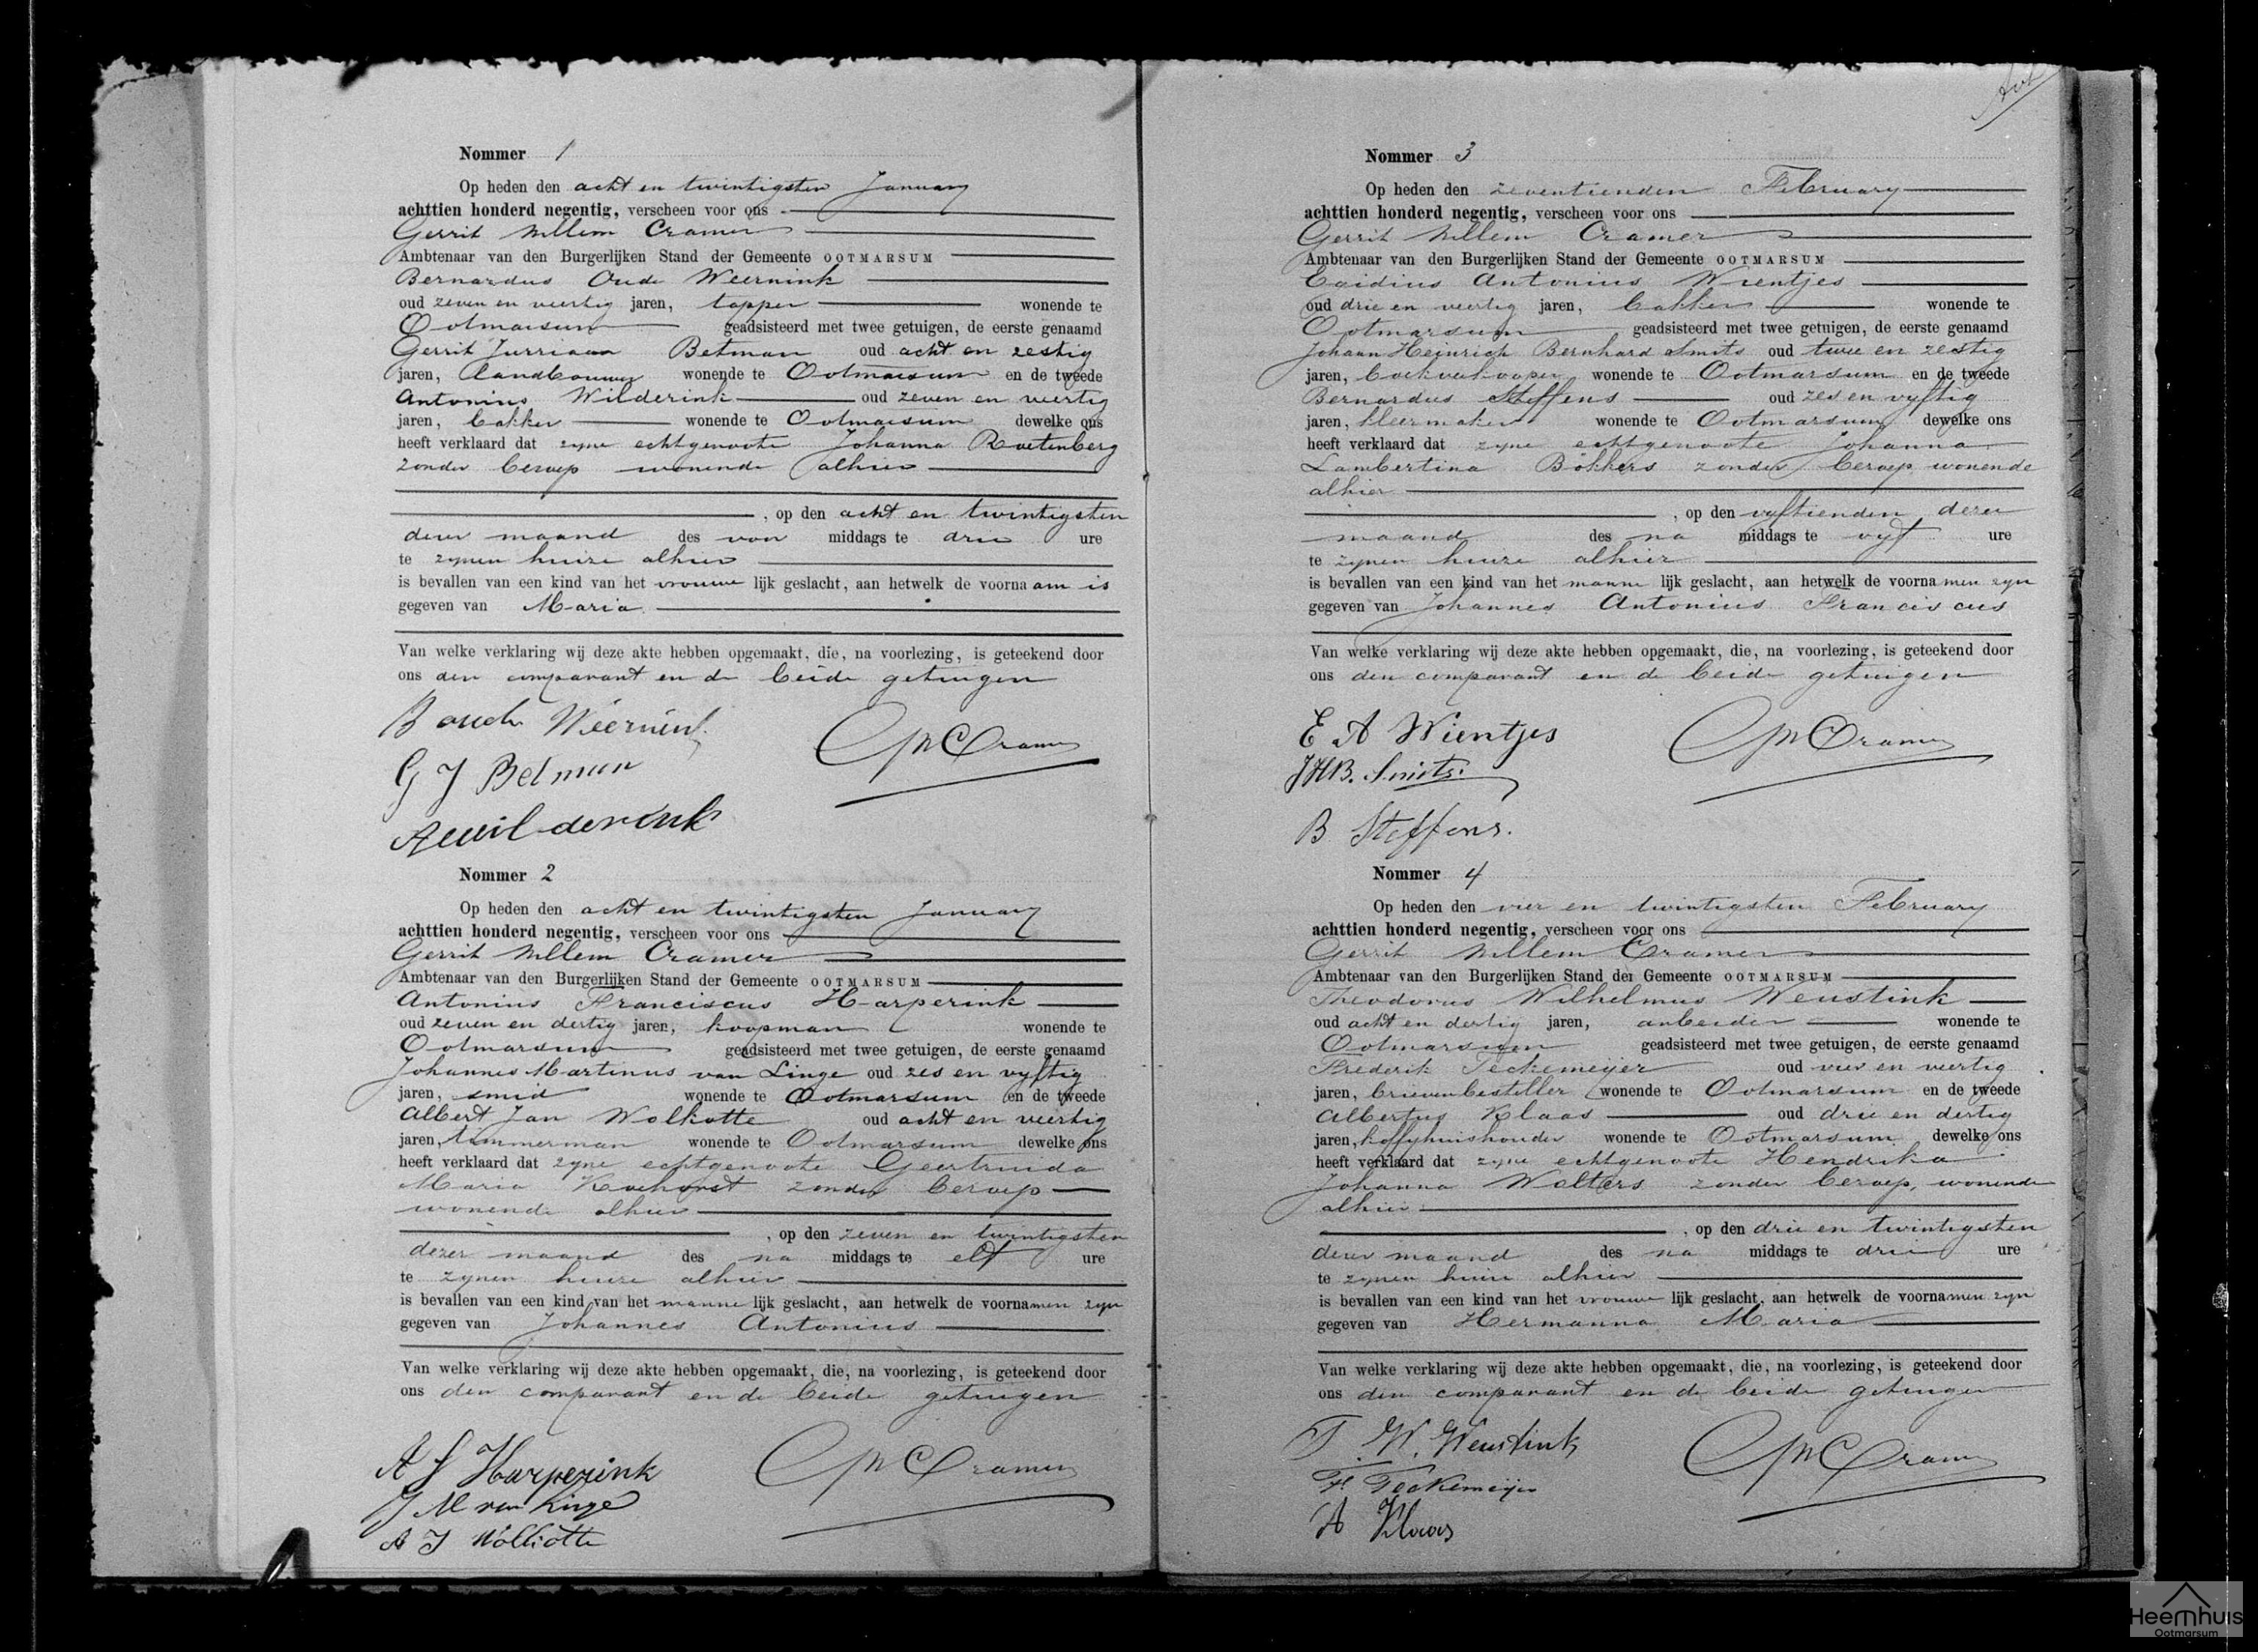 Nommer 1
Op heden den acht en twintigsten January
achttien honderd negentig, verscheen voor ons
Gerrit Willem Cramer
Ambtenaar van den Burgerlijken Stand der Gemeente OOTMARSUM
Bernardus Oude Weernink
oud zeven en veertig jaren, tapper wonende te
Ootmarsum geadsisteerd met twee getuigen, de eerste genaamd
Gerrit Jurriaan Betman oud acht en zestig
jaren, landbouwer wonende te Ootmarsum en de tweede
Antonius Wilderink oud zeven en veertig
jaren, bakker wonende te Ootmarsum dewelke ons
heeft verklaard dat zyne echtgenoote Johanna Roetenberg
zonder beroep wonende alhier
, op den acht en twintigsten
dezer maand des voor middags te drie ure
te zynen huize alhier
is bevallen van een kind van het vrouwelijk geslacht, aan hetwelk de voornaam is
gegeven van Maria
Van welke verklaring wij deze akte hebben opgemaakt, die, na voorlezing, is geteekend door
ons den comparant en de beide getuigen
B oude Weernink
GWCramer
G J Betman
A wilderink
Nommer 2
Op heden den acht en twintigsten January
achttien honderd negentig, verscheen voor ons
Gerrit Willem Cramer
Ambtenaar van den Burgerlijken Stand der Gemeente OOTMARSUM
Antonius Franciscus Harperink
oud zeven en dertig jaren, koopman wonende te
Ootmarsum geadsisteerd met twee getuigen, de eerste genaamd
Johannes Martinus van Linge oud zes en vyftig
jaren, smid wonende te Ootmarsum en de tweede
Albert Jan Wolkotte oud acht en veertig
jaren, timmerman wonende te Ootmarsum dewelke ons
heeft verklaard dat zyne echtgenoote Geertruida
Maria Koehorst zonder beroep
wonende alhier
, op den zeven en twintigsten
dezer maand des na middags te elf ure
te zynen huize alhier
is bevallen van een kind van het mannelijk geslacht, aan hetwelk de voornamen zyn
gegeven van Johannes Antonius
Van welke verklaring wij deze akte hebben opgemaakt, die, na voorlezing, is geteekend door
ons den comparant en de beide getuigen
A F Harperink
GWCramer
J M van Linge
A J Wolkotte
Nommer 3
Op heden den zeventienden February
achttien honderd negentig, verscheen voor ons
Gerrit Willem Cramer
Ambtenaar van den Burgerlijken Stand der Gemeente OOTMARSUM
Egidius Antonius Wientjes
oud drie en veertig jaren, bakker wonende te
Ootmarsum geadsisteerd met twee getuigen, de eerste genaamd
Johann Heinrich Bernhard Smits oud twee en zestig
jaren, boekverkooper wonende te Ootmarsum en de tweede
Bernardus Steffens oud zes en vyftig
jaren, kleermaker wonende te Ootmarsum dewelke ons
heeft verklaard dat zyne echtgenoote Johanna
Lambertina Bökkers zonder beroep wonende
alhier
, op den vyftienden dezer
maand des na middags te vyf ure
te zynen huize alhier
is bevallen van een kind van het mannelijk geslacht, aan hetwelk de voornamen zyn
gegeven van Johannes Antonius Franciscus
Van welke verklaring wij deze akte hebben opgemaakt, die, na voorlezing, is geteekend door
ons den comparant en de beide getuigen
E A Wientjes
GWCramer
JHB. Smits.
B Steffens.
Nommer 4
Op heden den vier en twintigsten February
achttien honderd negentig, verscheen voor ons
Gerrit Willem Cramer
Ambtenaar van den Burgerlijken Stand der Gemeente OOTMARSUM
Theodorus Wilhelmus Weustink
oud acht en dertig jaren, arbeider wonende te
Ootmarsum geadsisteerd met twee getuigen, de eerste genaamd
Frederik Teckemeijer oud vier en veertig
jaren, brievenbesteller wonende te Ootmarsum en de tweede
Albertus Klaas oud drie en dertig
jaren, koffyhuishouder wonende te Ootmarsum dewelke ons
heeft verklaard dat zyne echtgenoote Hendrika
Johanna Wolters zonder beroep, wonende
alhier
, op den drie en twintigsten
dezer maand des na middags te drie ure
te zynen huize alhier
is bevallen van een kind van het vrouwelijk geslacht, aan hetwelk de voornamen zyn
gegeven van Hermanna Maria
Van welke verklaring wij deze akte hebben opgemaakt, die, na voorlezing, is geteekend door
ons den comparant en de beide getuigen
T. W. Weustink
GWCramer
F. Teckemeijer
A Klaas
Heemhuis
Ootmarsum